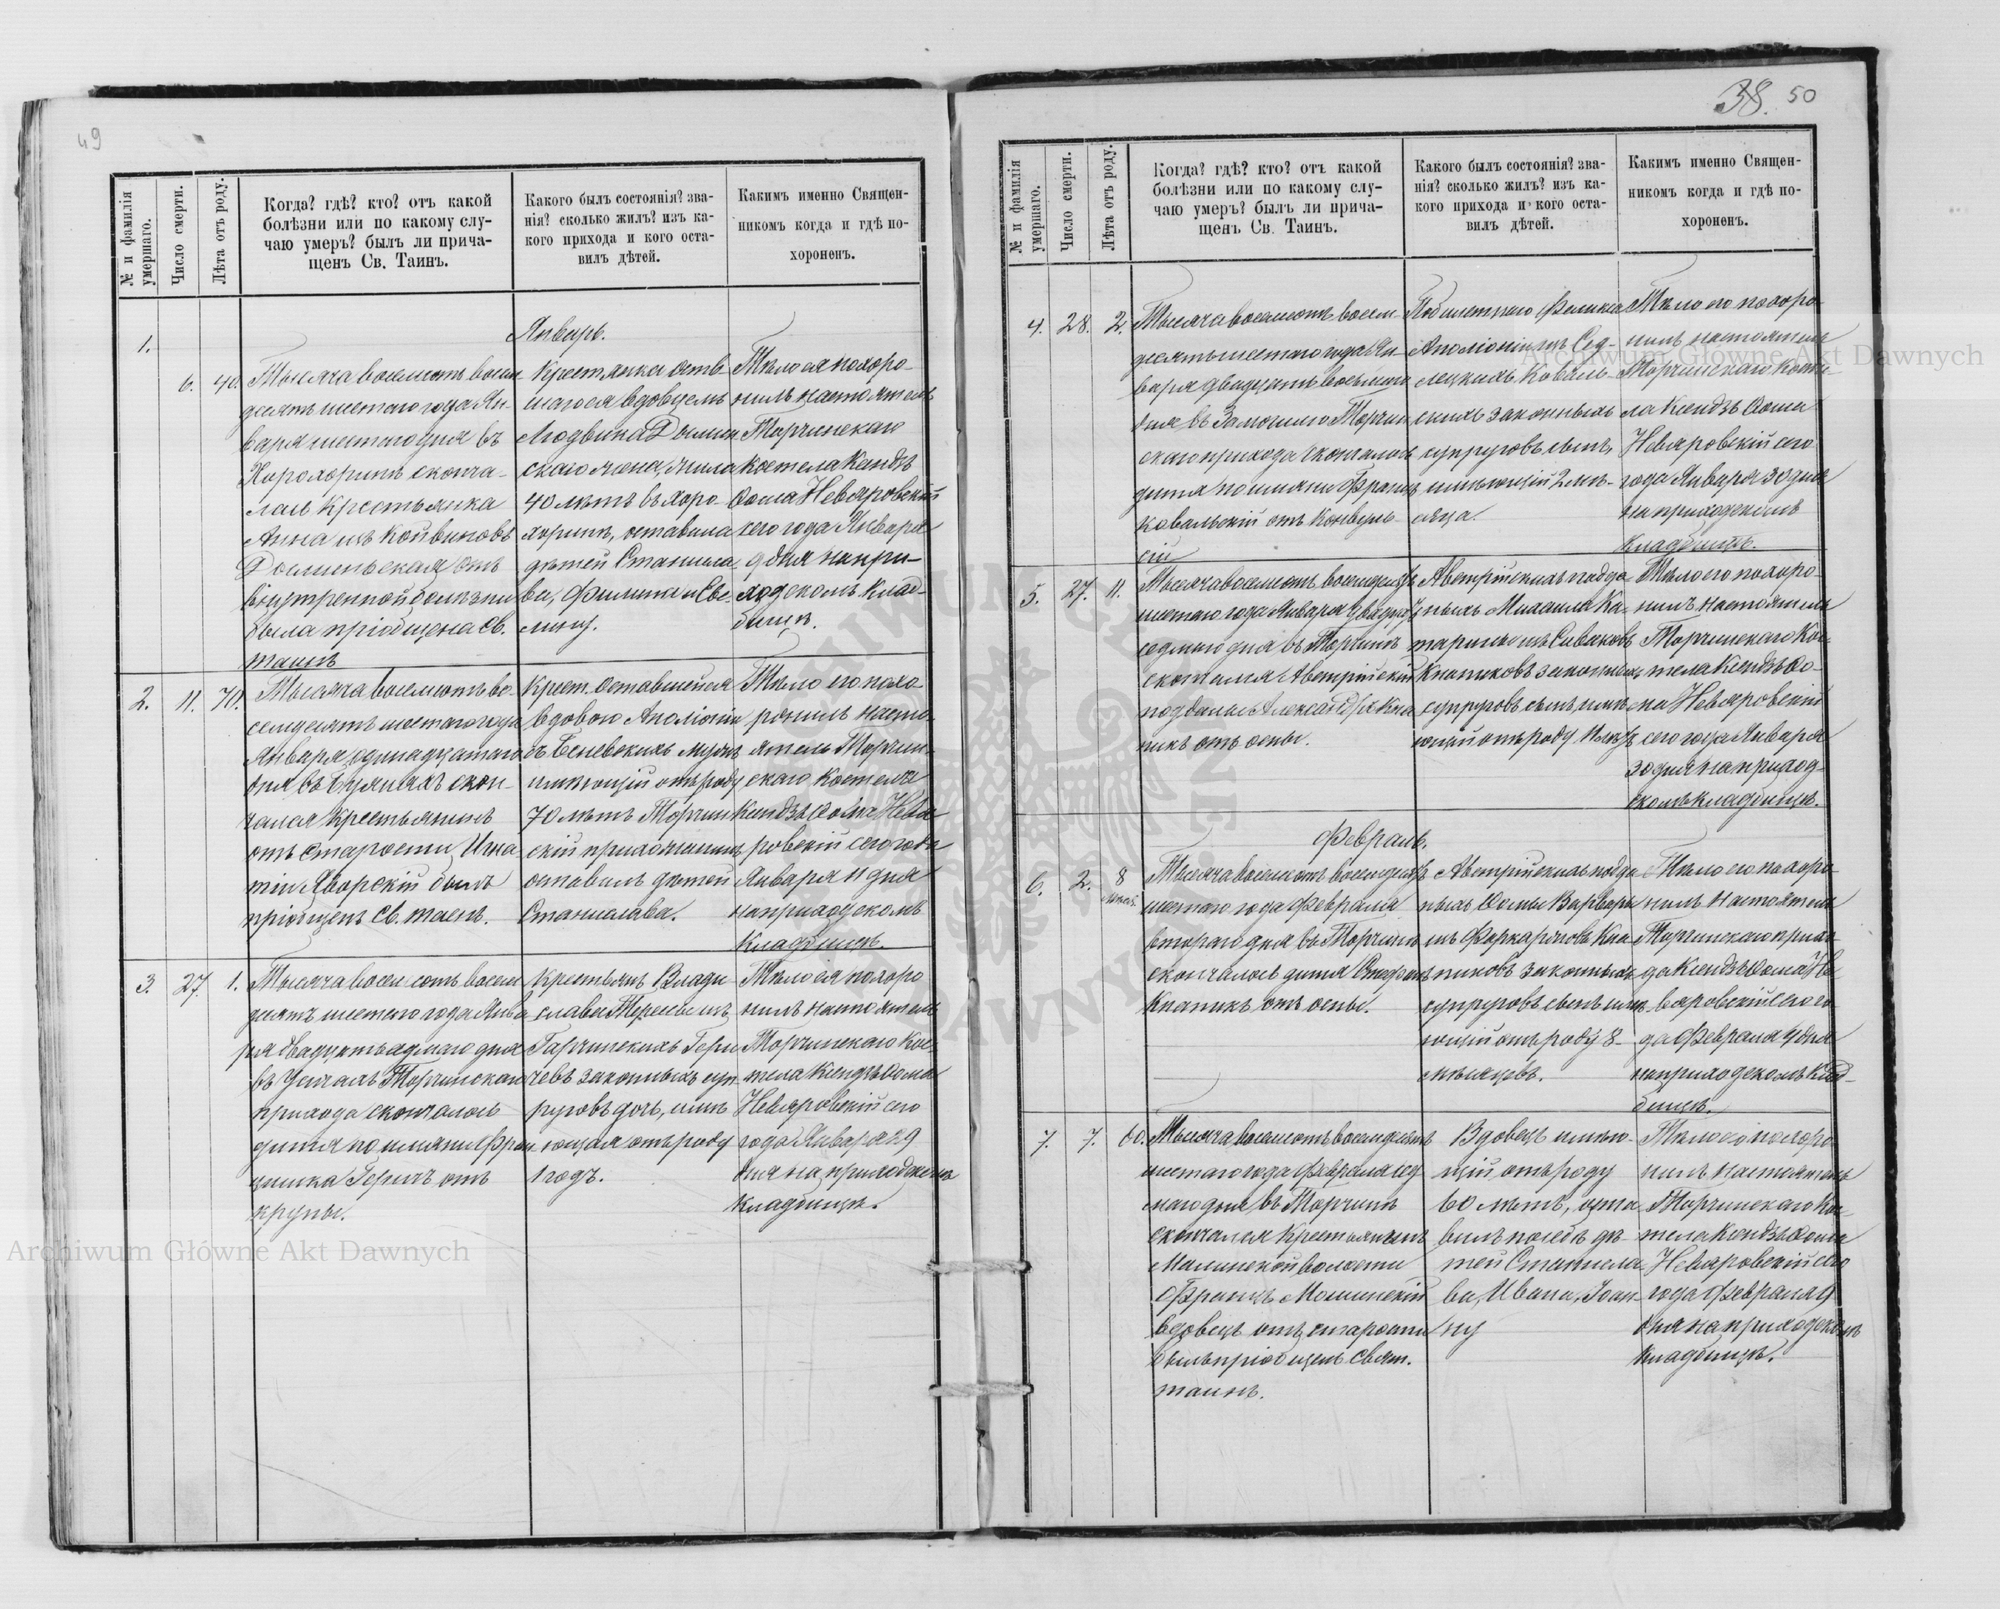 49
№ и фамилія умершаго.
Число смерти.
Лѣта отъ роду.
Когда? гдѣ? кто? отъ какой
болѣзни или по какому слу-
чаю умеръ? былъ ли прича-
щенъ Св. Таинъ.
Какого былъ состоянія? зва-
нія? сколько жилъ? изъ ка-
кого прихода и кого оста-
вилъ дѣтей.
Какимъ именно Священ-
никомъ когда и гдѣ по-
хороненъ.
Январь.
1.
6.
40.
Тысяча восемсотъ восем
десятъ шестаго года Ян-
варя шестаго дня въ
сконча-
лась Крестьянка
Анна изъ
отъ
внутренной болѣзни
была пріобщена Св.
таинъ
Крестьянка оста
шагося вдовцемъ
Людвика
скаго жена, жила
40 лѣтъ въ Хоро-
хоринѣ, оставила
дѣтей Станисла
ва, Филипа и Еве-
лину.
Тѣло ея похоро-
нилъ настоятель
Торчинскаго
костела Ксендзъ
Ѳома Невяровскій
сего года Января
9 дня на при-
ходскомъ клад-
бищѣ.
2.
11.
70.
Тысяча восемсотъ во-
семдесятъ шестаго года
Января одинадцатаго
дня въ скон-
чался Крестьянинъ
отъ старости Игна
тій Яворскій былъ
пріобщенъ Св. таинъ.
Крест. оставшейся
вдовою Аполіоніи
мужъ
имѣющій отъ роду
70 лѣтъ Торчин
скій прихожанинъ
оставилъ дѣтей
Станислава.
Тѣло его похо
ронилъ насто-
ятель Торчин-
скаго костела
Ксендзъ Ѳома Невя
ровскій сего года
Января 11 дня
на приходскомъ
кладбищѣ.
3.
27.
1.
Тысяча восемсотъ восем
десятъ шестаго года Янва
ря двадцать седмаго дня
въ Торчинскаго
прихода скончалось
дитя по имяни Фран
цишка Геричъ отъ
крупы.
Крестьянъ Влади
слава Терезы изъ
Гери
чевъ законныхъ суп-
руговъ дочь, имѣ
ющая отъ роду
1 годъ.
Тѣло ея похоро
нилъ настоятель
Торчинскаго Кос-
тела Ксендзъ Ѳома
Невяровскій сего
года Января 29
дня на приходскомъ
кладбищѣ.
Archiwum Główne Akt Dawnych
38. 50
№ и фамилія умершаго.
Число смерти.
Лѣта отъ роду.
Когда? гдѣ? кто? отъ какой
болѣзни или по какому слу-
чаю умеръ? былъ ли прича-
щенъ Св. Таинъ.
Какого былъ состоянія? зва-
нія? сколько жилъ? изъ ка-
кого прихода и кого оста-
вилъ дѣтей.
Какимъ именно Священ-
никомъ когда и гдѣ по-
хороненъ.
4.
28.
2.
Тысяча восемсотъ восем
десятъ шестаго года Ян
варя двадцать восьмаго
дня въ Торчин
скаго прихода скончалось
дитя по имяни Францъ
Ковальскій отъ конвуль-
сіи
Феликса
Аполіоніи изъ Сед-
лецкихъ Коваль-
скихъ законныхъ
супруговъ сынъ,
имѣющій 2 мѣ-
сяца.
Тѣло его похоро-
нилъ настоятель
Торчинскаго Косте
ла Ксендзъ Ѳома
Невяровскій сего
года Января 30 дня
на приходскомъ
кладбищѣ.
Archiwum Główne Akt Dawnych
5.
27.
11.
Тысяча восемсотъ восемдесятъ
шестаго года Января двадцать
седмаго дня въ Торчинѣ
скончался Австрійскій
подданный Александръ Кна
пикъ отъ оспы.
Австрійскихъ поддан
ныхъ Михаила Ка-
тарины изъ
Кнапиковъ законныхъ
супруговъ сынъ имѣ
ющій отъ роду 11 лѣтъ
Тѣло его похоро-
нилъ настоятель
Торчинскаго Кос-
тела Ксендзъ Ѳо-
ма Невяровскій
сего года Января
30 дня на приход-
скомъ кладбищѣ.
Февраль.
6.
2.
8
Тысяча восемсотъ восемдесятъ
шестаго года Февраля
втораго дня въ Торчинѣ
скончалось дитя Стефанъ
Кнапикъ отъ оспы.
Австрійскихъ подда
ныхъ Варвары
изъ Кна-
пиковъ законныхъ
супруговъ сынъ имѣ-
ющій отъ роду 8-
мѣсяцевъ.
Тѣло его похоро-
нилъ настоятель
Торчинскаго прихо
да Ксендзъ Ѳома Не-
вяровскій сего го-
да Февраля 4 дня
на приходскомъ клад-
бищѣ.
7.
7.
60.
Тысяча восемсотъ восемдесятъ
шестаго года Февраля сед
маго дня въ Торчинѣ
скончался Крестьянинъ
Малинской волости
Францъ
вдовецъ отъ старости
былъ пріобщенъ Свят.
таинъ.
Вдовецъ имѣю-
щій отъ роду
60 лѣтъ, оста
вилъ послѣ дѣ-
тей Станисла
ва, Ивана, Іоан-
ну
Тѣло его похоро
нилъ настоятель
Торчинскаго Кос-
тела Ксендзъ Ѳома
Невяровскій сего
года Февраля 9
дня на приходскомъ
кладбищѣ.